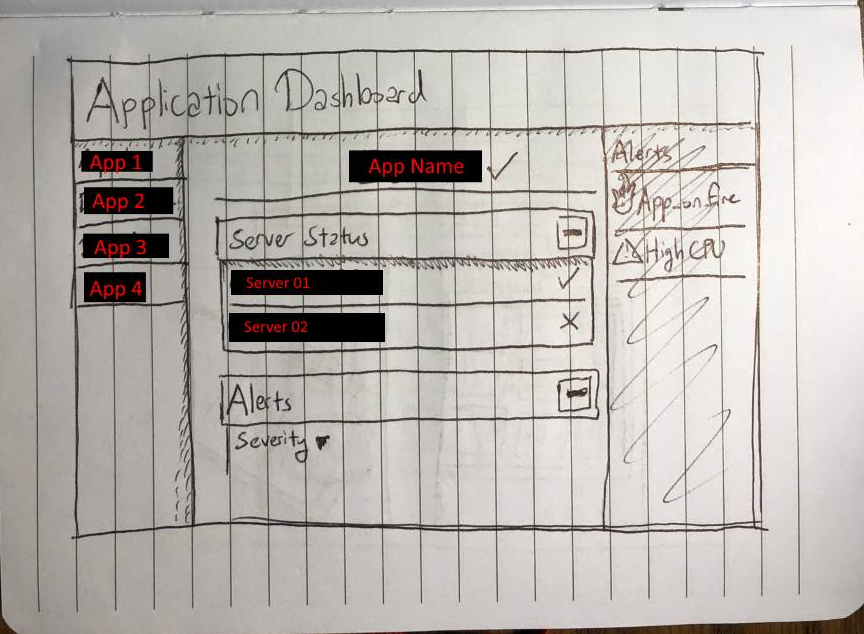 Application Dashboard
App 1
App 2
App 3
App 4
App Name
Server Status
Server 01
Server 02
Alerts
Severity
Alerts
App on fire
High CPU